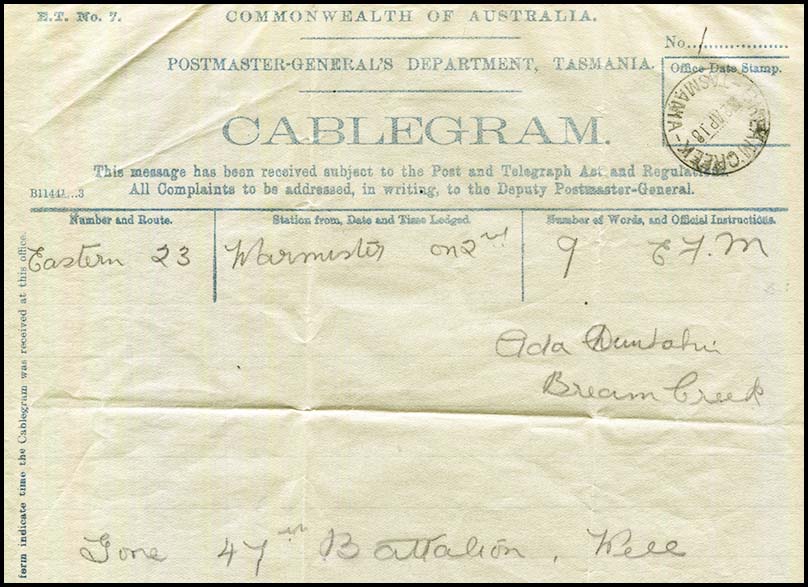 E.T. No. 7.
COMMONWEALTH OF AUSTRALIA.
No. 1
POSTMASTER-GENERAL'S DEPARTMENT, TASMANIA.
Office Date Stamp.
CABLEGRAM.
This message has been received subject to the Post and Telegraph Act and Regulations.
All Complaints to be addressed, in writing, to the Deputy Postmaster-General.
CREEK - TASMANIA
AP 18
Number and Route.
Station from, Date and Time Lodged.
Number of Words, and Official Instructions.
Eastern 23
Warminster on 2nd
9 E F. M
Ada
Bream Creek
Gone 47th Battalion,
form indicate time the Cablegram was received at this office.